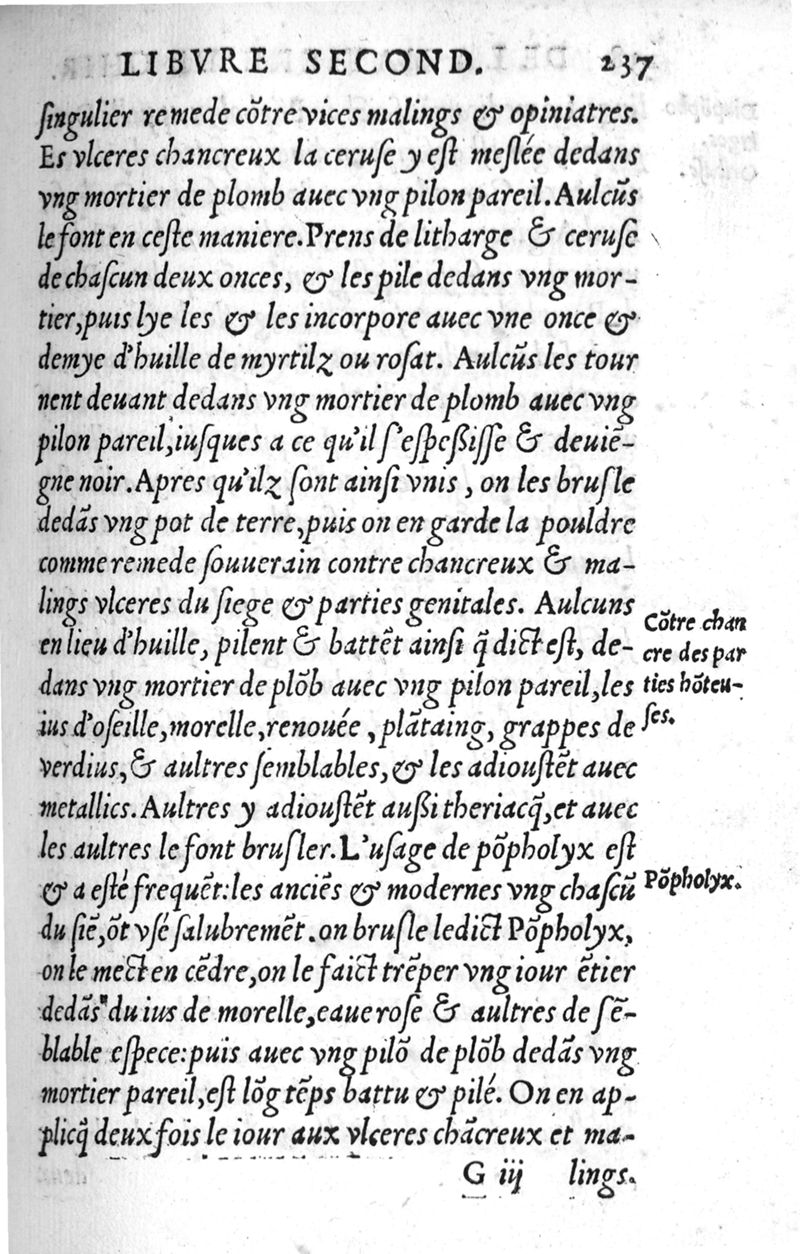 LIBVRE SECOND. 237
ſingulier remede cõtre vices malings & opiniatres.
Es vlceres chancreux la ceruſe y eſt meſlée dedans
vng mortier de plomb auec vng pilon pareil. Aulcũs
le font en ceſte maniere. Prens de litharge & ceruſe
de chaſcun deux onces, & les pile dedans vng mor-
tier, puis lye les & les incorpore auec vne once &
demye d'huille de myrtilz ou roſat. Aulcũs les tour
nent deuant dedans vng mortier de plomb auec vng
pilon pareil, iuſques a ce qu'il ſ'eſpeßiſſe & deuiẽ-
gne noir. Apres qu'ilz ſont ainſi vnis, on les bruſle
dedãs vng pot de terre, puis on en garde la pouldre
comme remede ſouuerain contre chancreux & ma-
lings vlceres du ſiege & parties genitales. Aulcuns
en lieu d'huille, pilent & battẽt ainſi q̃ dict eſt, de-
dans vng mortier de plõb auec vng pilon pareil, les
ius d'oſeille, morelle, renouée, plãtaing, grappes de
verdius, & aultres ſemblables, & les adiouſtẽt auec
metallics. Aultres y adiouſtẽt außi theriacq̃, et auec
les aultres le font bruſler. L'uſage de põpholyx eſt
& a eſté frequẽt: les anciẽs & modernes vng chaſcũ
du ſiẽ, õt vſé ſalubremẽt. on bruſle ledict Põpholyx,
on le mect en cẽdre, on le faict trẽper vng iour ẽtier
dedãs du ius de morelle, eaue roſe & aultres de ſẽ-
blable eſpece: puis auec vng pilõ de plõb dedãs vng
mortier pareil, eſt lõg tẽps battu & pilé. On en ap-
plicq̃ deux fois le iour aux vlceres chãcreux et ma-
G iij lings.
Cõtre chan
cre des par
ties hõteu-
ſes.
Põpholyx.